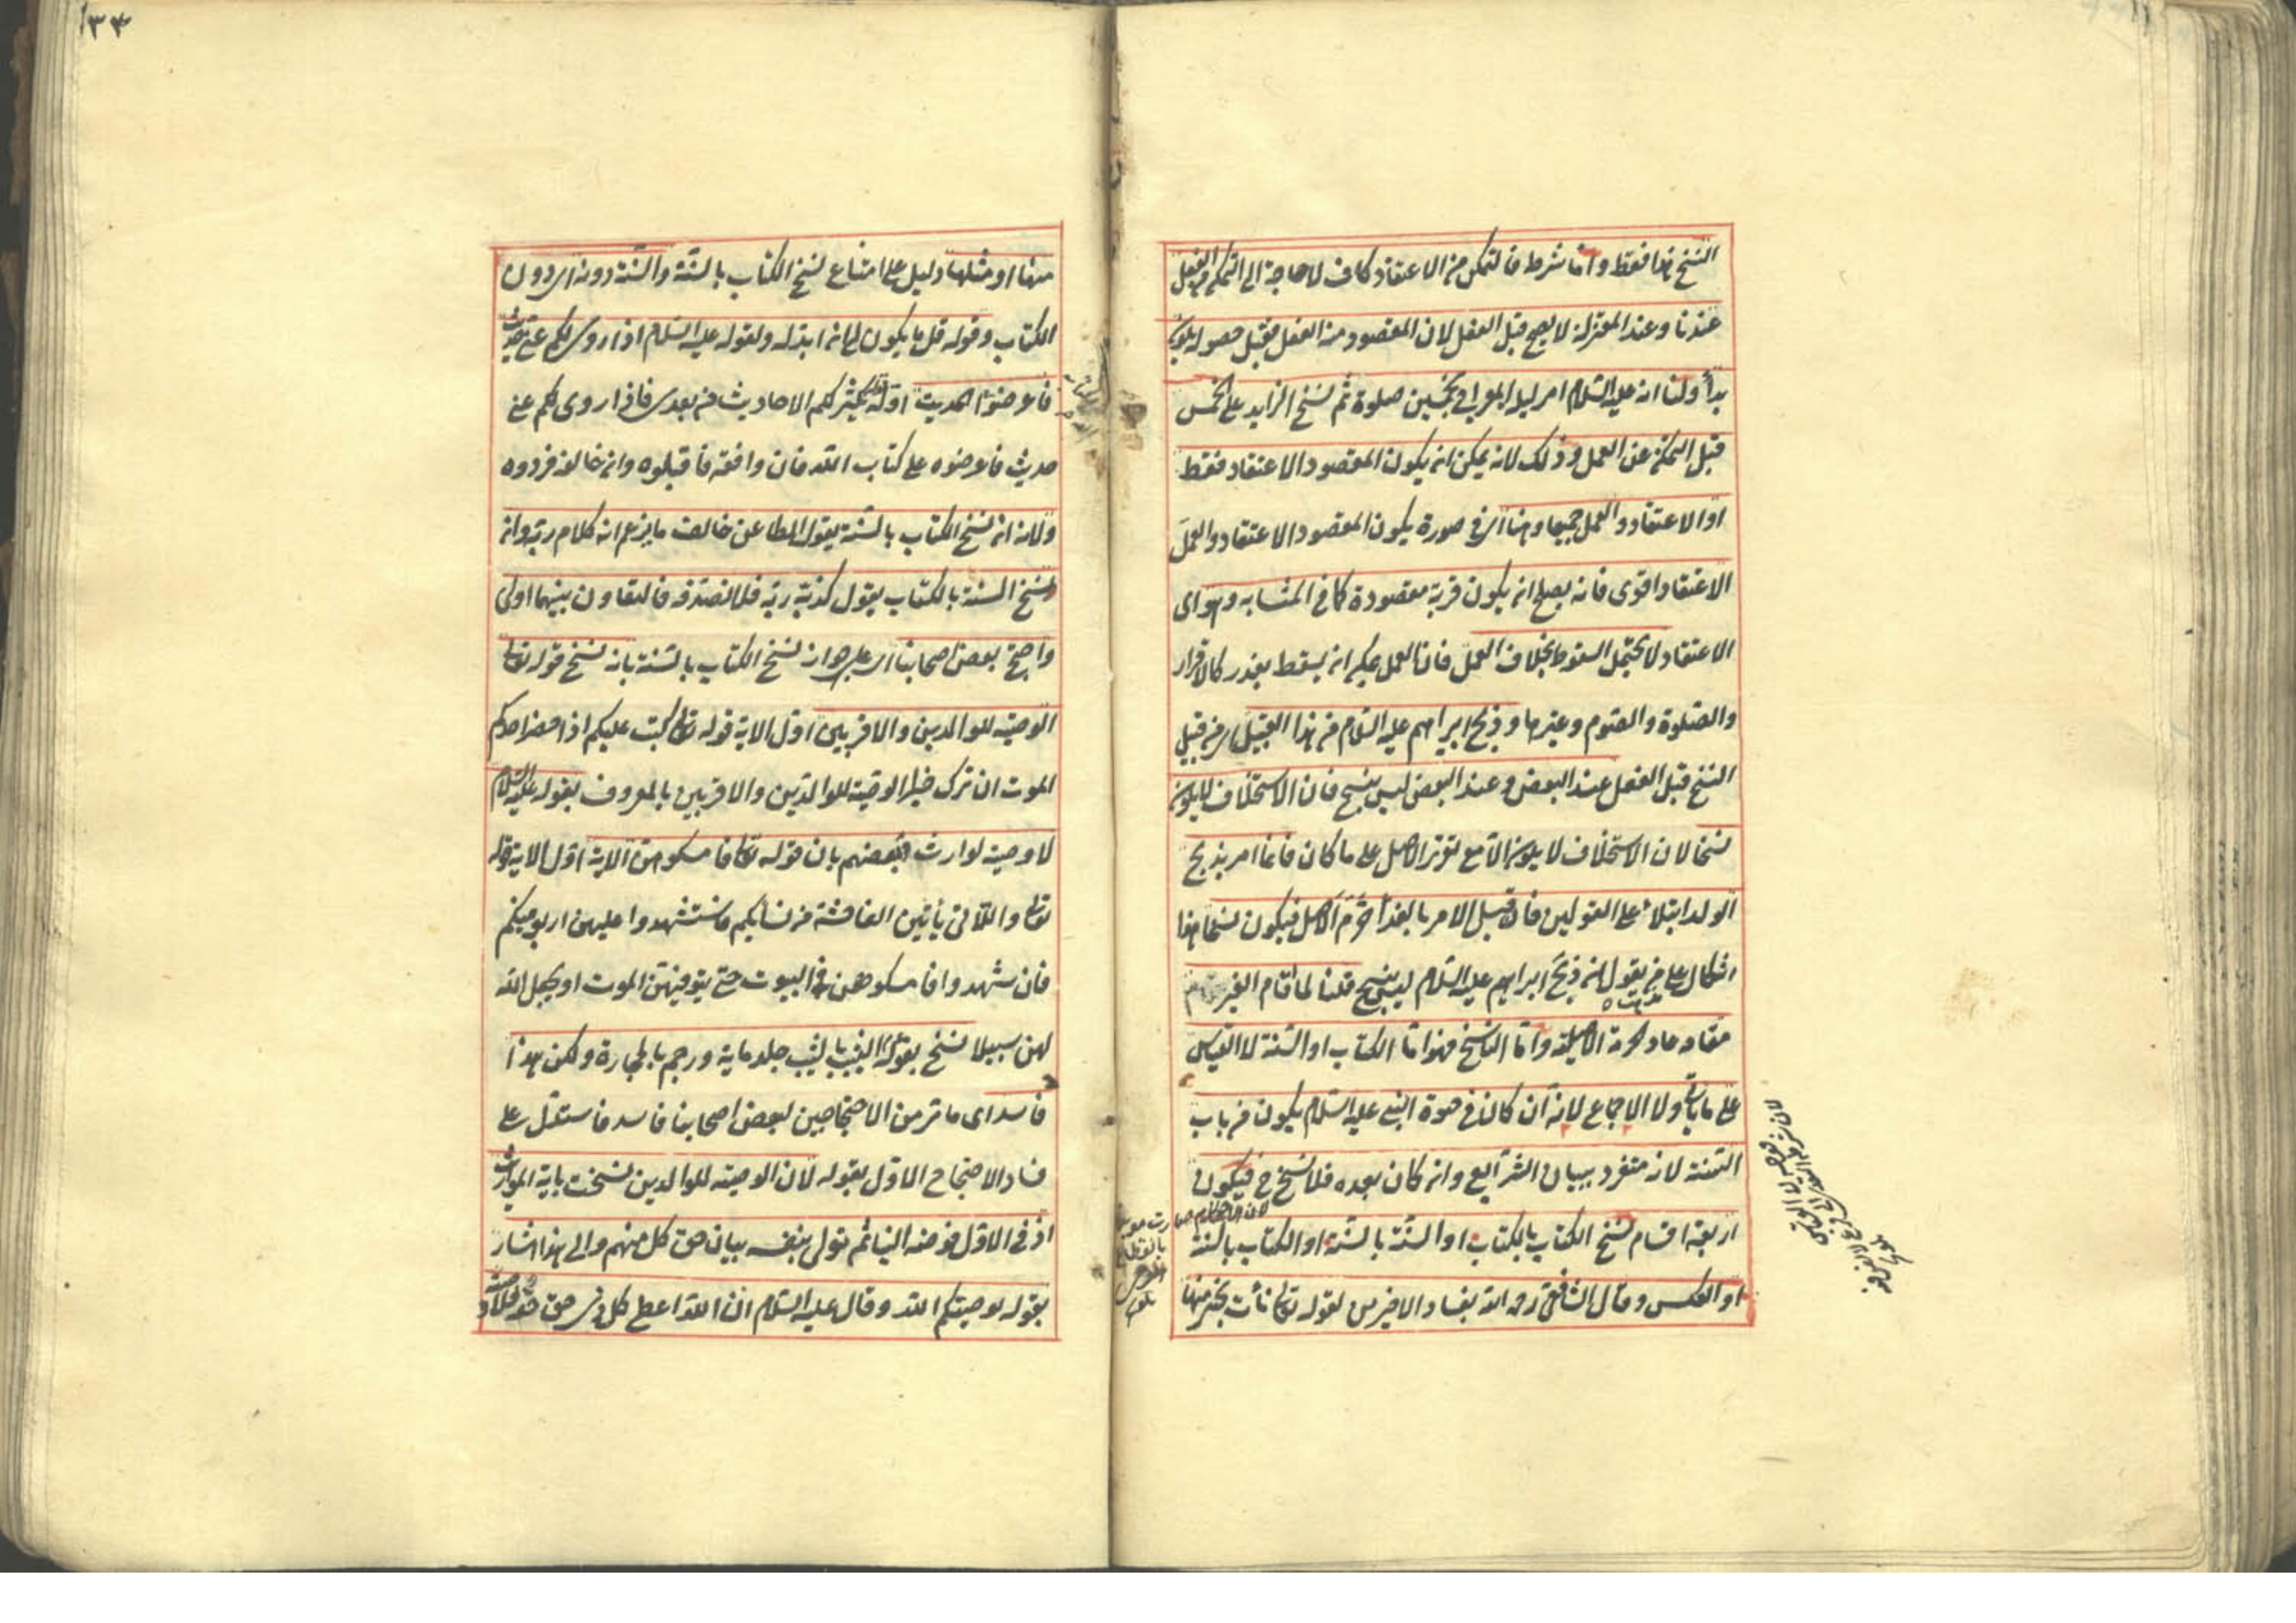 النسخ هذا فقط واما شرطه فالتمكن من الاعتقاد كاف لا حاجة الى التمكن من الفعل
عندنا وعند المعتزلة لا يصح قبل الفعل لان المقصود منه الفعل فقبل حصوله يكون
بدأ ولنا انه عليه السلام امر ليلة المعراج بخمسين صلوة ثم نسخ الزايد على الخمس
قبل التمكن من العمل وذلك لانه يمكن ان يكون المقصود الاعتقاد فقط
او الاعتقاد والعمل جميعا وهنا اى فى صورة يكون المقصود الاعتقاد والعمل
الاعتقاد اقوى فانه يصلح ان يكون قربة مقصودة كما فى المتشابه وهو اى
الاعتقاد لا يحتمل السقوط بخلاف العمل فان العمل يمكن ان يسقط بعذر كالاقرار
والصلوة والصوم وغيرها وذبح ابراهيم عليه السلام من هذا القبيل اى من قبيل
النسخ قبل الفعل عند البعض وعند البعض ليس بنسخ فان الاستخلاف لا يكون
نسخا لان الاستخلاف لا يكون الا مع تقرر الاصل على ما كان فانما امر بذبح
الولد ابتلاء على القولين فان قيل الامر بالفداء حرم الاصل فيكون نسخا هذا
اشكال على من يقول ان ذبح ابراهيم عليه السلام ليس بنسخ قلنا لما قام الغير
مقامه عاد الحرمة الاصلية واما الناسخ فهو اما الكتاب او السنة لا القياس
على ما يأتى ولا الاجماع لانه ان كان فى حيوة النبى عليه السلام يكون من باب
السنة لانه متفرد ببيان الشرايع وان كان بعده فلا نسخ ح فيكون
اربعة اقسام نسخ الكتاب بالكتاب او السنة بالسنة او الكتاب بالسنة
او العكس وقال الشافعى رحمه الله بفساد الاخيرين لقوله تعالى نأت بخير منها
لان شرط التعدية الى فرع لا نص فيه
تلويح
١٣٤
منها او مثلها دليل على امتناع نسخ الكتاب بالسنة والسنة دونه اى دون
الكتاب وقوله قل ما يكون لى ان ابدله ولقوله عليه السلام اذا روى لكم عنى حديث
فاعرضوا الحديث اوله تكثر لكم الاحاديث من بعدى فاذا روى لكم عنى
حديث فاعرضوه على كتاب الله فان وافقه فاقبلوه وان خالفه فردوه
ولانه ان نسخ الكتاب بالسنة يقول الطاعن خالف ما يزعم انه كلام ربه وان
نسخ السنة بالكتاب يقول كذبه ربه فلا نصدقه فالتعاون بينهما اولى
واحتج بعض اصحابنا اى على جواز نسخ الكتاب بالسنة بان نسخ قوله تعالى
الوصية للوالدين والاقربين اول الاية قوله تعالى كتب عليكم اذا حضر احدكم
الموت ان ترك خيرا الوصية للوالدين والاقربين بالمعروف بقوله عليه السلام
لا وصية لوارث وبعضهم بان قوله تعالى فامسكوهن الاية اول الاية قوله
تعالى واللاتى يأتين الفاحشة من نسائكم فاستشهدوا عليهن اربعة منكم
فان شهدوا فامسكوهن فى البيوت حتى يتوفيهن الموت او يجعل الله
لهن سبيلا نسخ بقوله الثيب بالثيب جلد ماية ورجم بالحجارة ولكن هذا
فاسد اى ما مر من الاحتجاجين لبعض اصحابنا فاسد فاستدل على
فساد الاحتجاج الاول بقوله لان الوصية للوالدين نسخت باية المواريث
اذ فى الاول فوضه الينا ثم تولى بنفسه بيان حق كل منهم والى هذا اشار
بقوله يوصيكم الله وقال عليه السلام ان الله اعطى كل ذى حق حقه فلا وصية